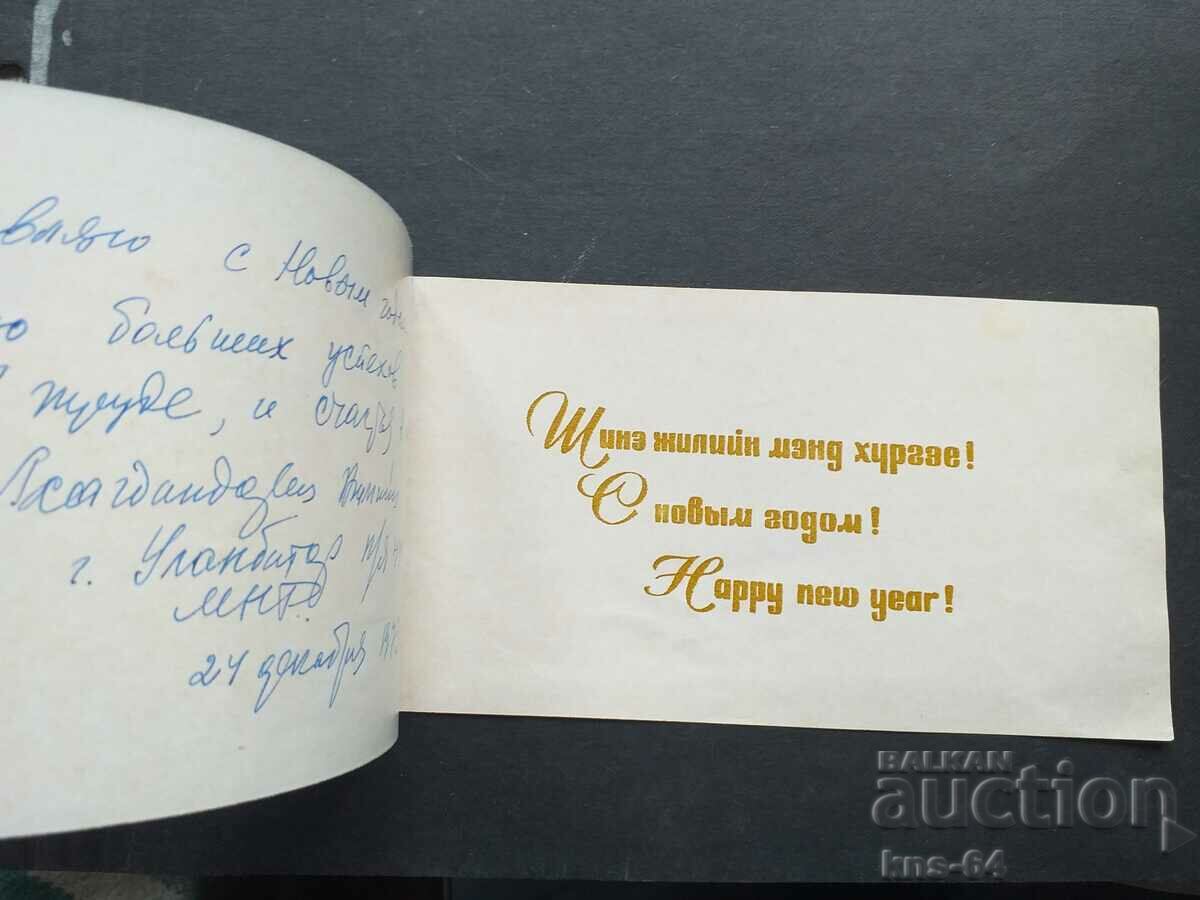 вляю с Новым
ю больших успехов
труде, и счастья
г. Уланбатор п/я
МНР.
24 декабря 197
Шинэ жилийн мэнд хүргэе!
С новым годом!
Happy new year!
BALKAN
auction
kns-64